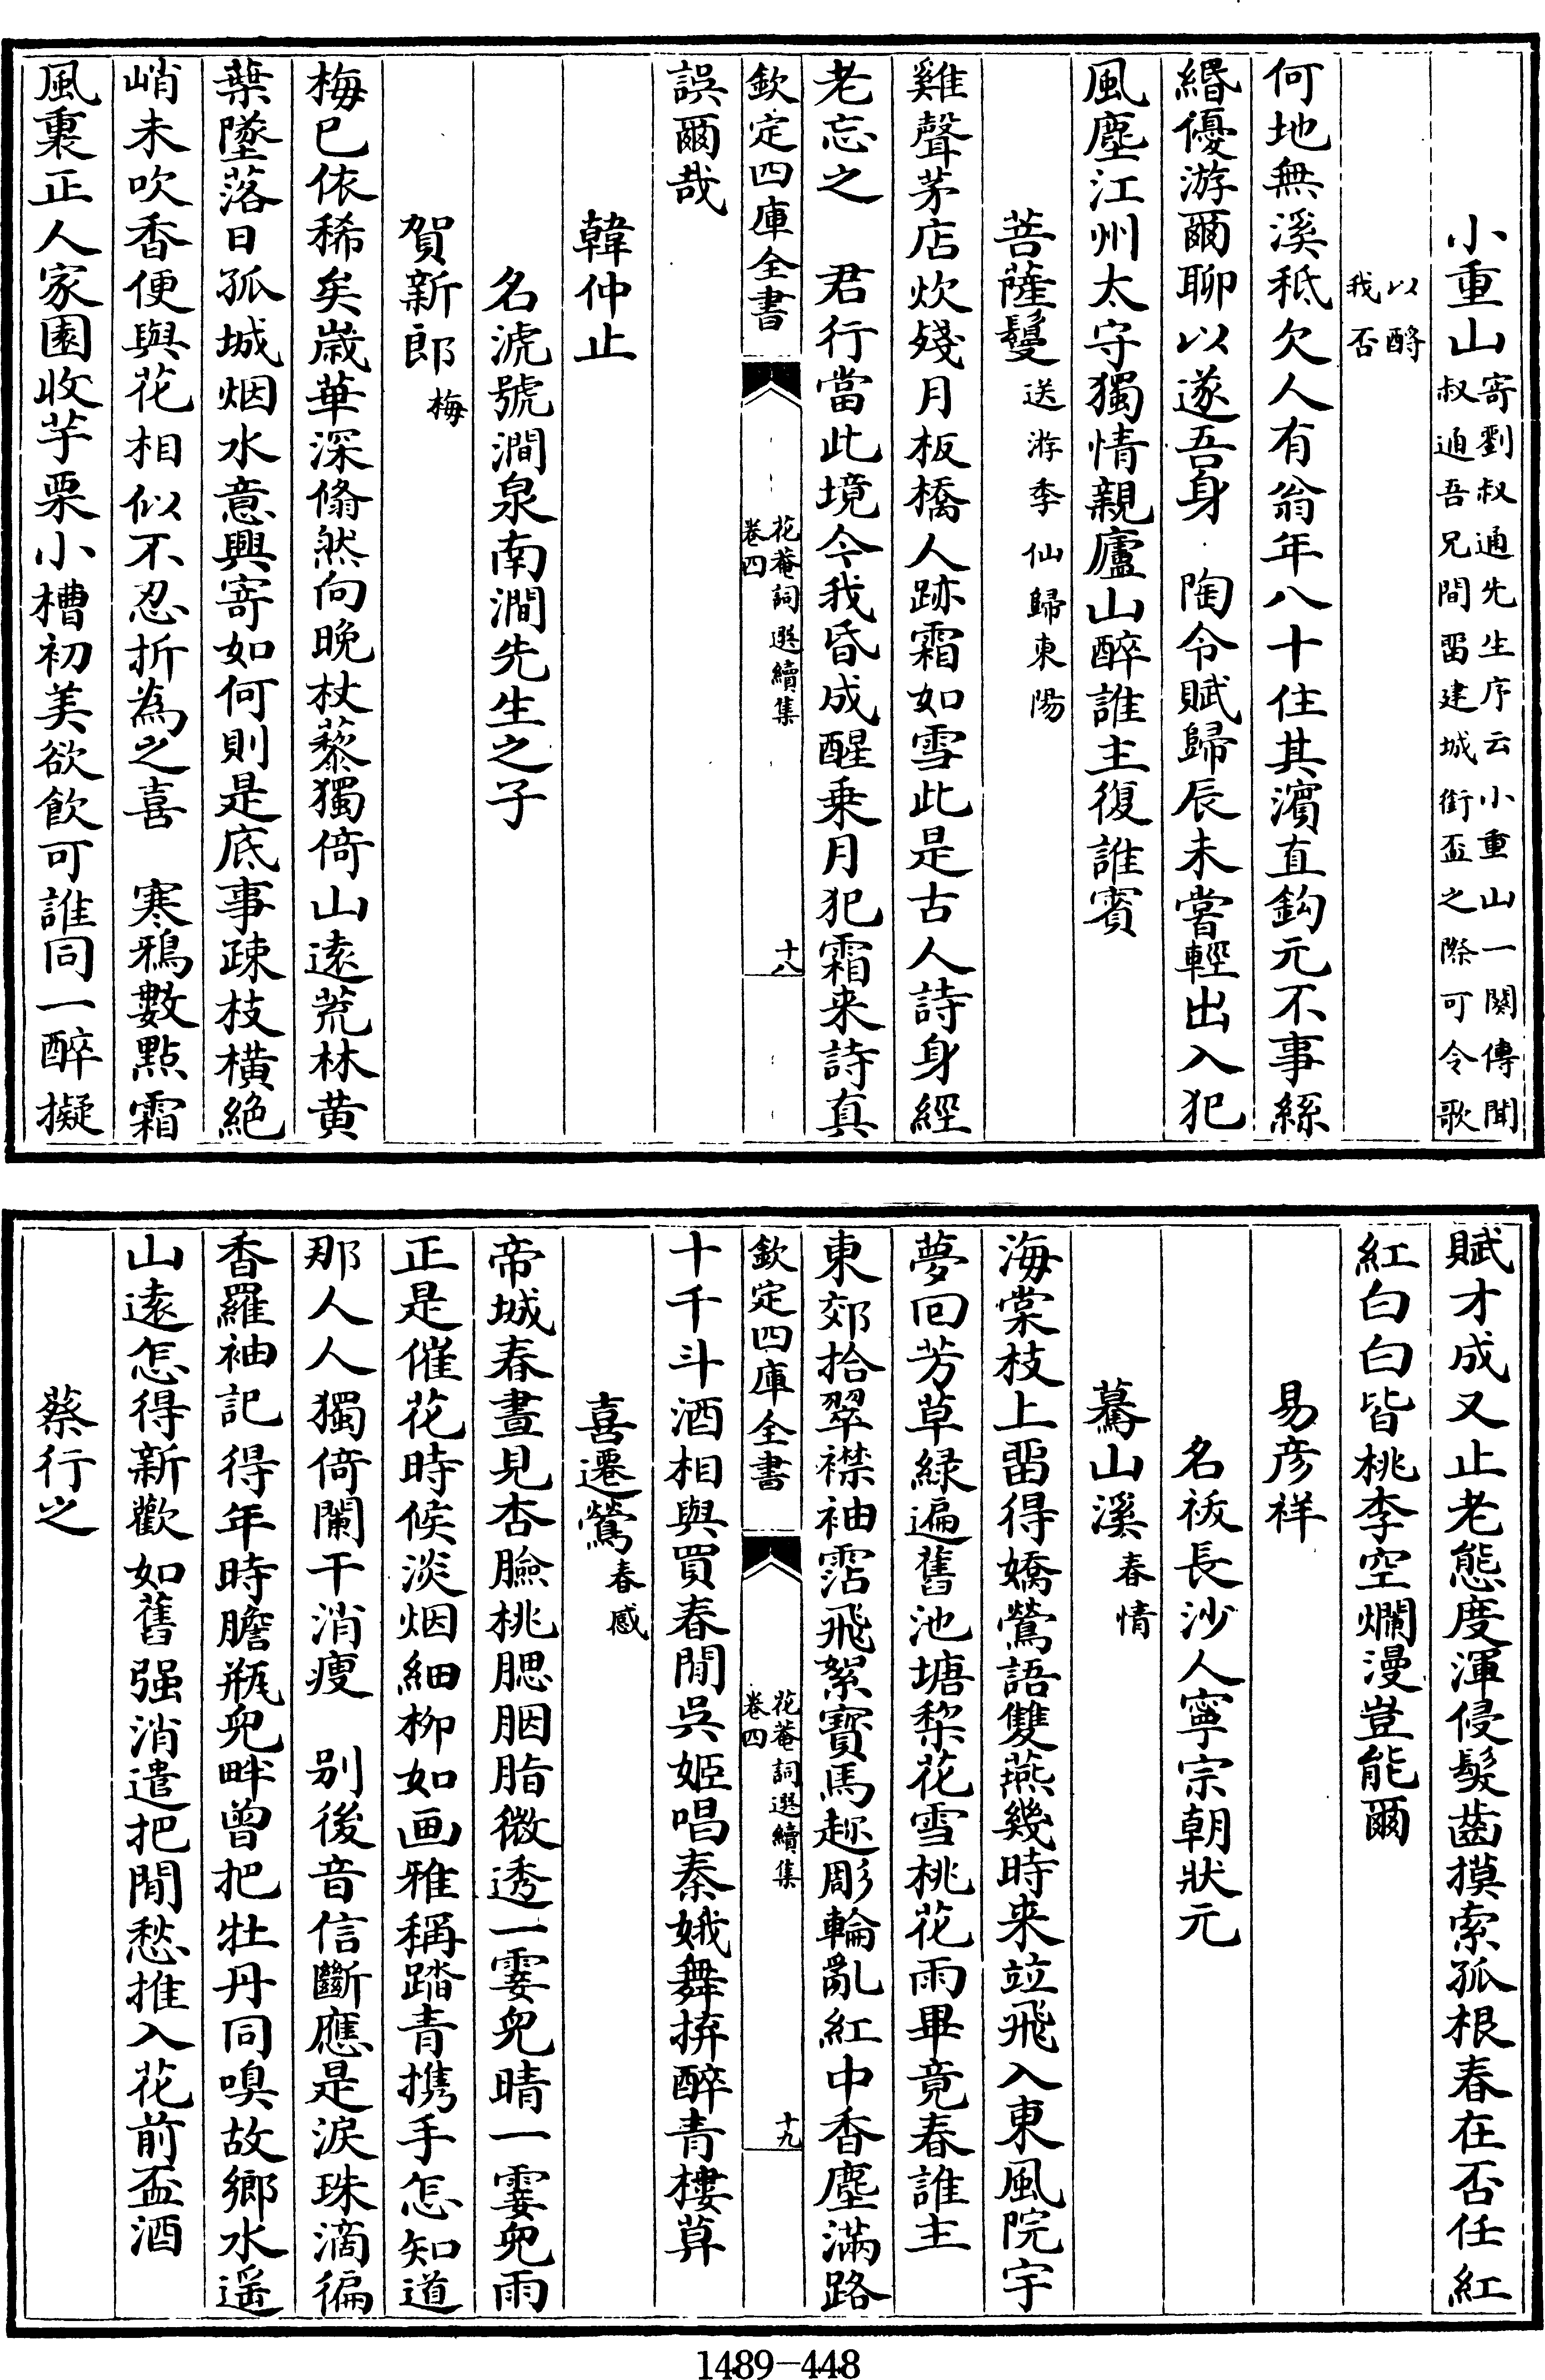 小重山寄劉叔通先生序云小重山一闋傳聞
叔通吾兄間留建城銜盃之際可令歌
以酹
我否
何地無溪秪欠人有翁年八十住其濱直鈎元不事絲
緡優游爾聊以遂吾身 陶令賦歸辰未嘗輕出入犯
風塵江州太守獨情親廬山醉誰主復誰賓
菩薩鬘送游季仙歸東陽
雞聲茅店炊殘月板橋人跡霜如雪此是古人詩身經
老忘之 君行當此境令我昏成醒乗月犯霜来詩真
欽定四庫全書
花菴詞選續集
卷四
十八
誤爾哉
韓仲止
名淲號澗泉南澗先生之子
賀新郎梅
梅已依稀矣歳華深翛然向晚杖藜獨倚山遠荒林黄
葉墜落日孤城烟水意興寄如何則是底事疎枝横絶
峭未吹香便與花相似不忍折為之喜 寒鴉數點霜
風裏正人家園收芋栗小槽初美欲飲可誰同一醉擬
賦才成又止老態度渾侵髮齒摸索孤根春在否任紅
紅白白皆桃李空爛漫豈能爾
易彦祥
名祓長沙人寧宗朝狀元
驀山溪春情
海棠枝上留得嬌鶯語雙燕幾時来竝飛入東風院宇
夢回芳草緑遍舊池塘棃花雪桃花雨畢竟春誰主
東郊拾翠襟袖霑飛絮寳馬趂彫輪亂紅中香塵滿路
欽定四庫全書
花菴詞選續集
卷四
十九
十千斗酒相與買春閒吳姬唱秦娥舞拚醉青樓暮
喜遷鶯春感
帝城春晝見杏臉桃腮胭脂微透一霎兒晴一霎兒雨
正是催花時候淡烟細柳如画雅稱踏青携手怎知道
那人人獨倚闌干消瘦 别後音信斷應是淚珠滴徧
香羅袖記得年時膽瓶兒畔曾把牡丹同嗅故鄉水遥
山遠怎得新歡如舊强消遣把閒愁推入花前盃酒
蔡行之
1489-448